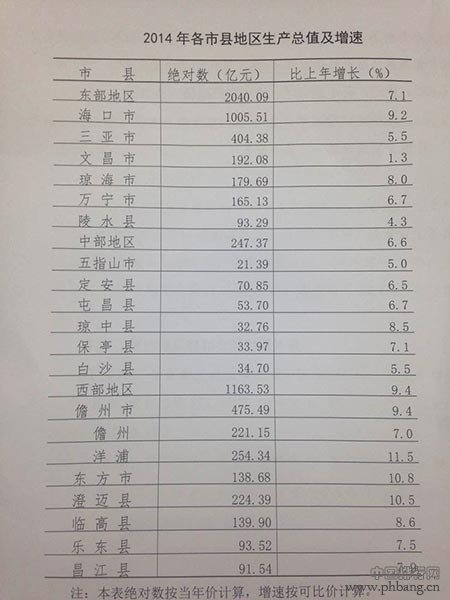 2014年各市县地区生产总值及增速
市 县 绝对数（亿元） 比上年增长（%）
东部地区 2040.09 7.1
海口市 1005.51 9.2
三亚市 404.38 5.5
文昌市 192.08 1.3
琼海市 179.69 8.0
万宁市 165.13 6.7
陵水县 93.29 4.3
中部地区 247.37 6.6
五指山市 21.39 5.0
定安县 70.85 6.5
屯昌县 53.70 6.7
琼中县 32.76 8.5
保亭县 33.97 7.1
白沙县 34.70 5.5
西部地区 1163.53 9.4
儋州市 475.49 9.4
儋州 221.15 7.0
洋浦 254.34 11.5
东方市 138.68 10.8
澄迈县 224.39 10.5
临高县 139.90 8.6
乐东县 93.52 7.5
昌江县 91.54
注：本表绝对数按当年价计算，增速按可比价计算。
www.phbang.cn